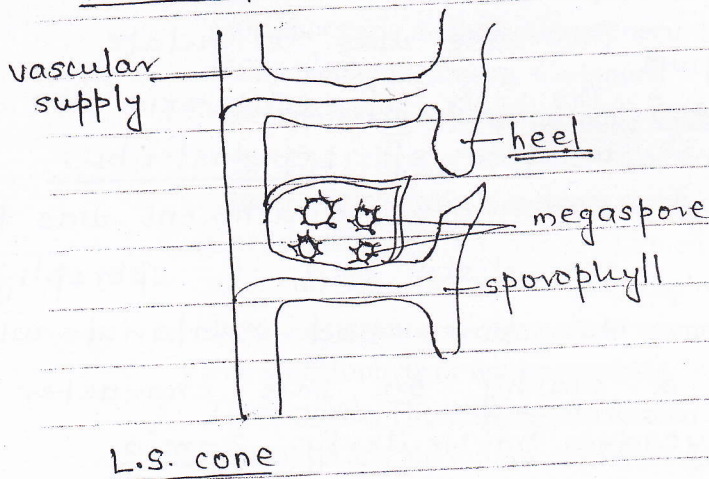 vascular
supply
heel
megaspore
sporophyll
L.S. cone